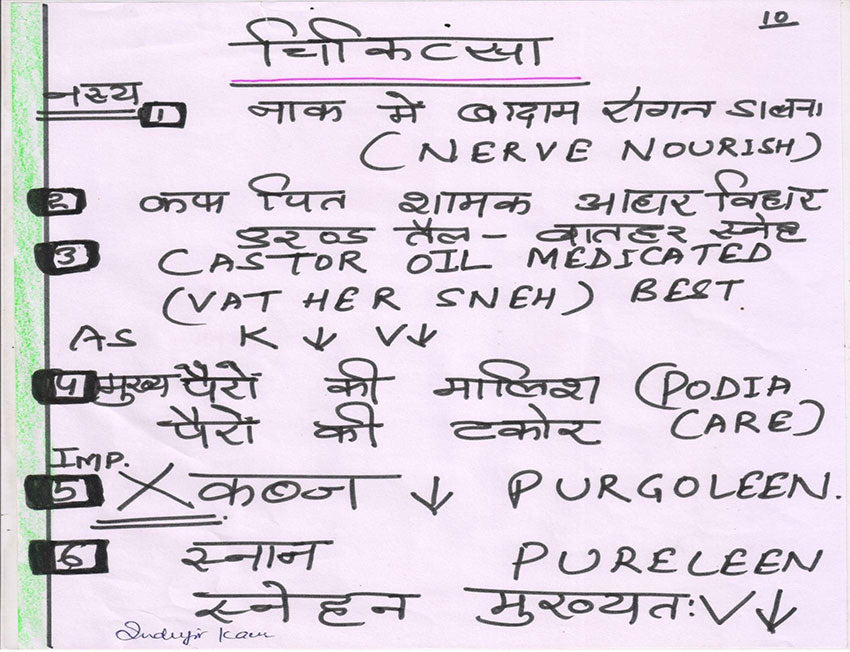 10
चिकित्सा
नस्य
1 नाक में बादाम रोगन डालना
(NERVE NOURISH)
2 कफ पित शामक आहार विहार
एरण्ड तैल - वातहर स्नेह
3 CASTOR OIL MEDICATED
(VAT HER SNEH) BEST
AS K ↓ V↓
4 मुख्य पैरों की मालिश (PODIA
पैरों की टकोर CARE)
IMP.
5 X कब्ज ↓ PURGOLEEN.
6 स्नान PURELEEN
स्नेहन मुख्यतः V↓